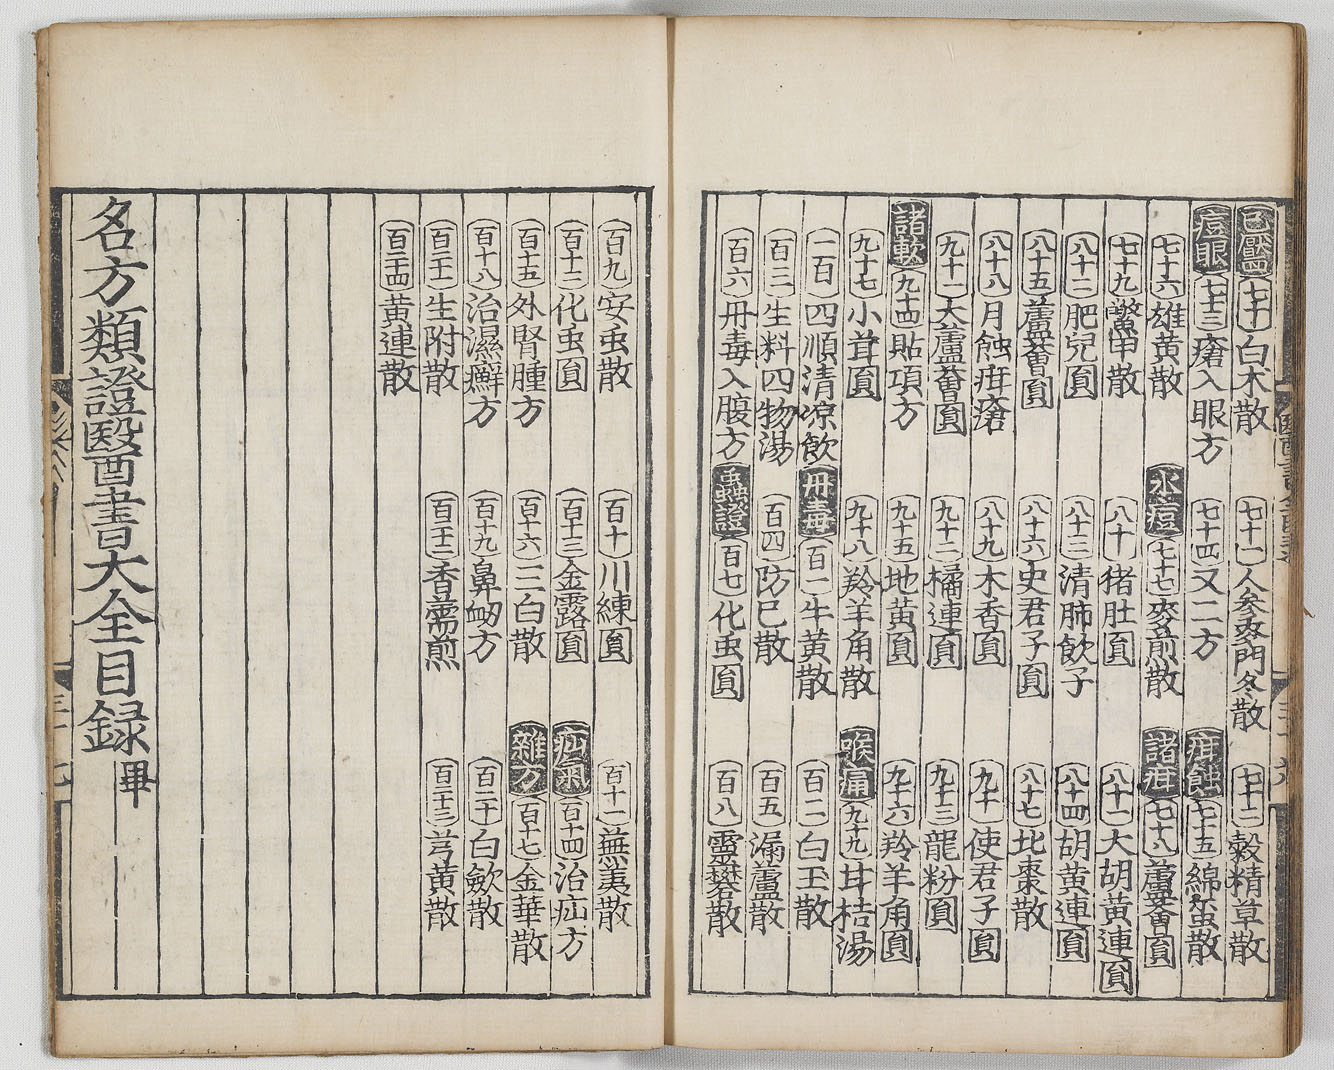 已靨 七十 白术散 七十一 人參麥門冬散 七十二 穀精草散
痘眼 七十三 瘡入眼方 七十四 又二方 疳蝕 七十五 綿蚕散
七十六 雄黃散 水痘 七十七 麥煎散 諸疳 七十八 蘆薈圓
七十九 鱉甲散 八十 猪肚圓 八十一 大胡黃連圓
八十二 肥兒圓 八十三 清肺飲子 八十四 胡黃連圓
八十五 蘆薈圓 八十六 史君子圓 八十七 比棗散
八十八 月蝕疳瘡 八十九 木香圓 九十 使君子圓
九十一 大蘆薈圓 九十二 橘連圓 九十三 龍粉圓
諸軟 九十四 貼項方 九十五 地黃圓 九十六 羚羊角圓
九十七 小茸圓 九十八 羚羊角散 喉痛 九十九 甘桔湯
一百 四順清凉飲 丹毒 百一 牛黃散 百二 白玉散
百三 生料四物湯 百四 防已散 百五 漏蘆散
百六 丹毒入腹方 蟲證 百七 化虫圓 百八 靈礬散
百九 安虫散 百十 川練圓 百十一 蕪荑散
百十二 化虫圓 百十三 金露圓 疝氣 百十四 治疝方
百十五 外腎腫方 百十六 三白散 雜方 百十七 金華散
百十八 治濕癬方 百十九 鼻衂方 百二十 白歛散
百二十一 生附散 百二十二 香薷煎 百二十三 芎黃散
百二十四 黃連散
名方類證醫書大全目録畢